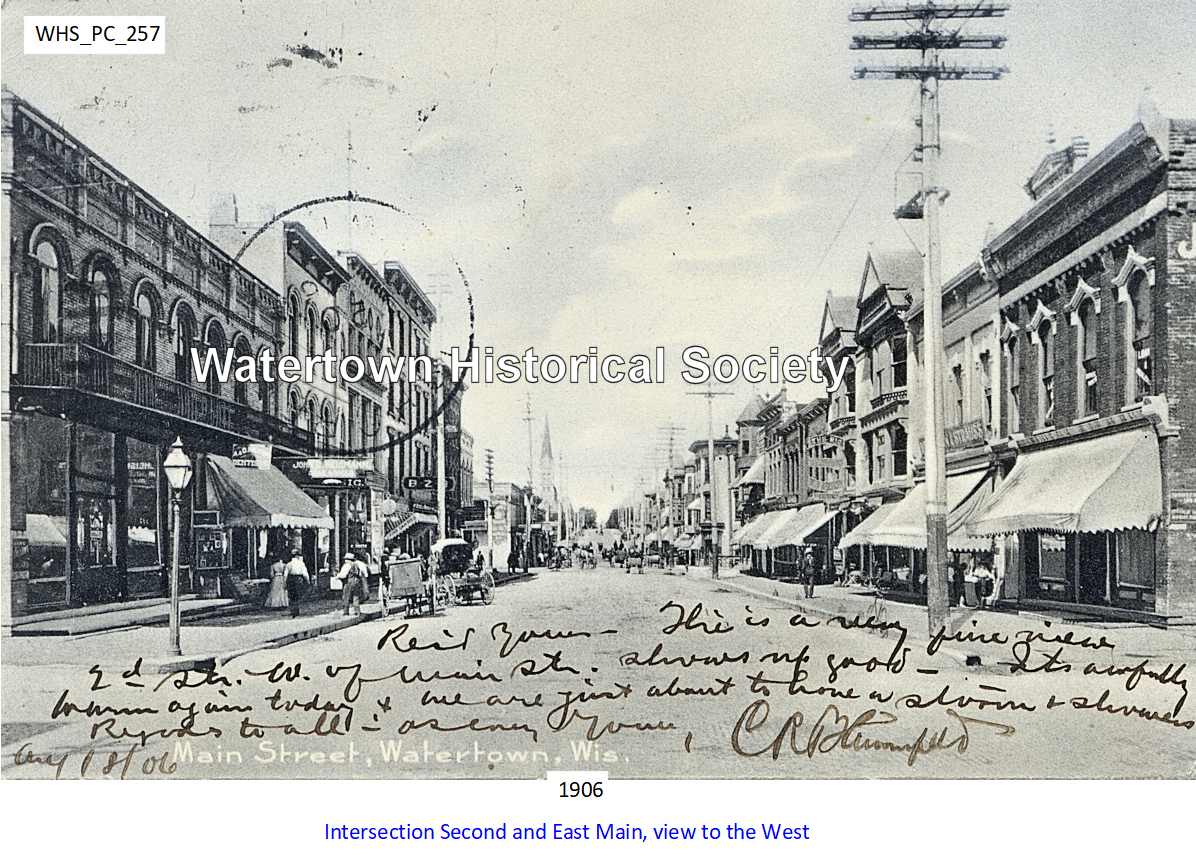 WHS_PC_257
Watertown Historical Society
B 2
STRAUSS
Rec'd Yours - This is a very fine view
2nd Str. W. of Main Str. shows up good - Its awfully
warm again today & we are just about to have a storm & showers
Regards to all - as ever Yours,
Aug 18/06
Main Street, Watertown, Wis.
1906
Intersection Second and East Main, view to the West